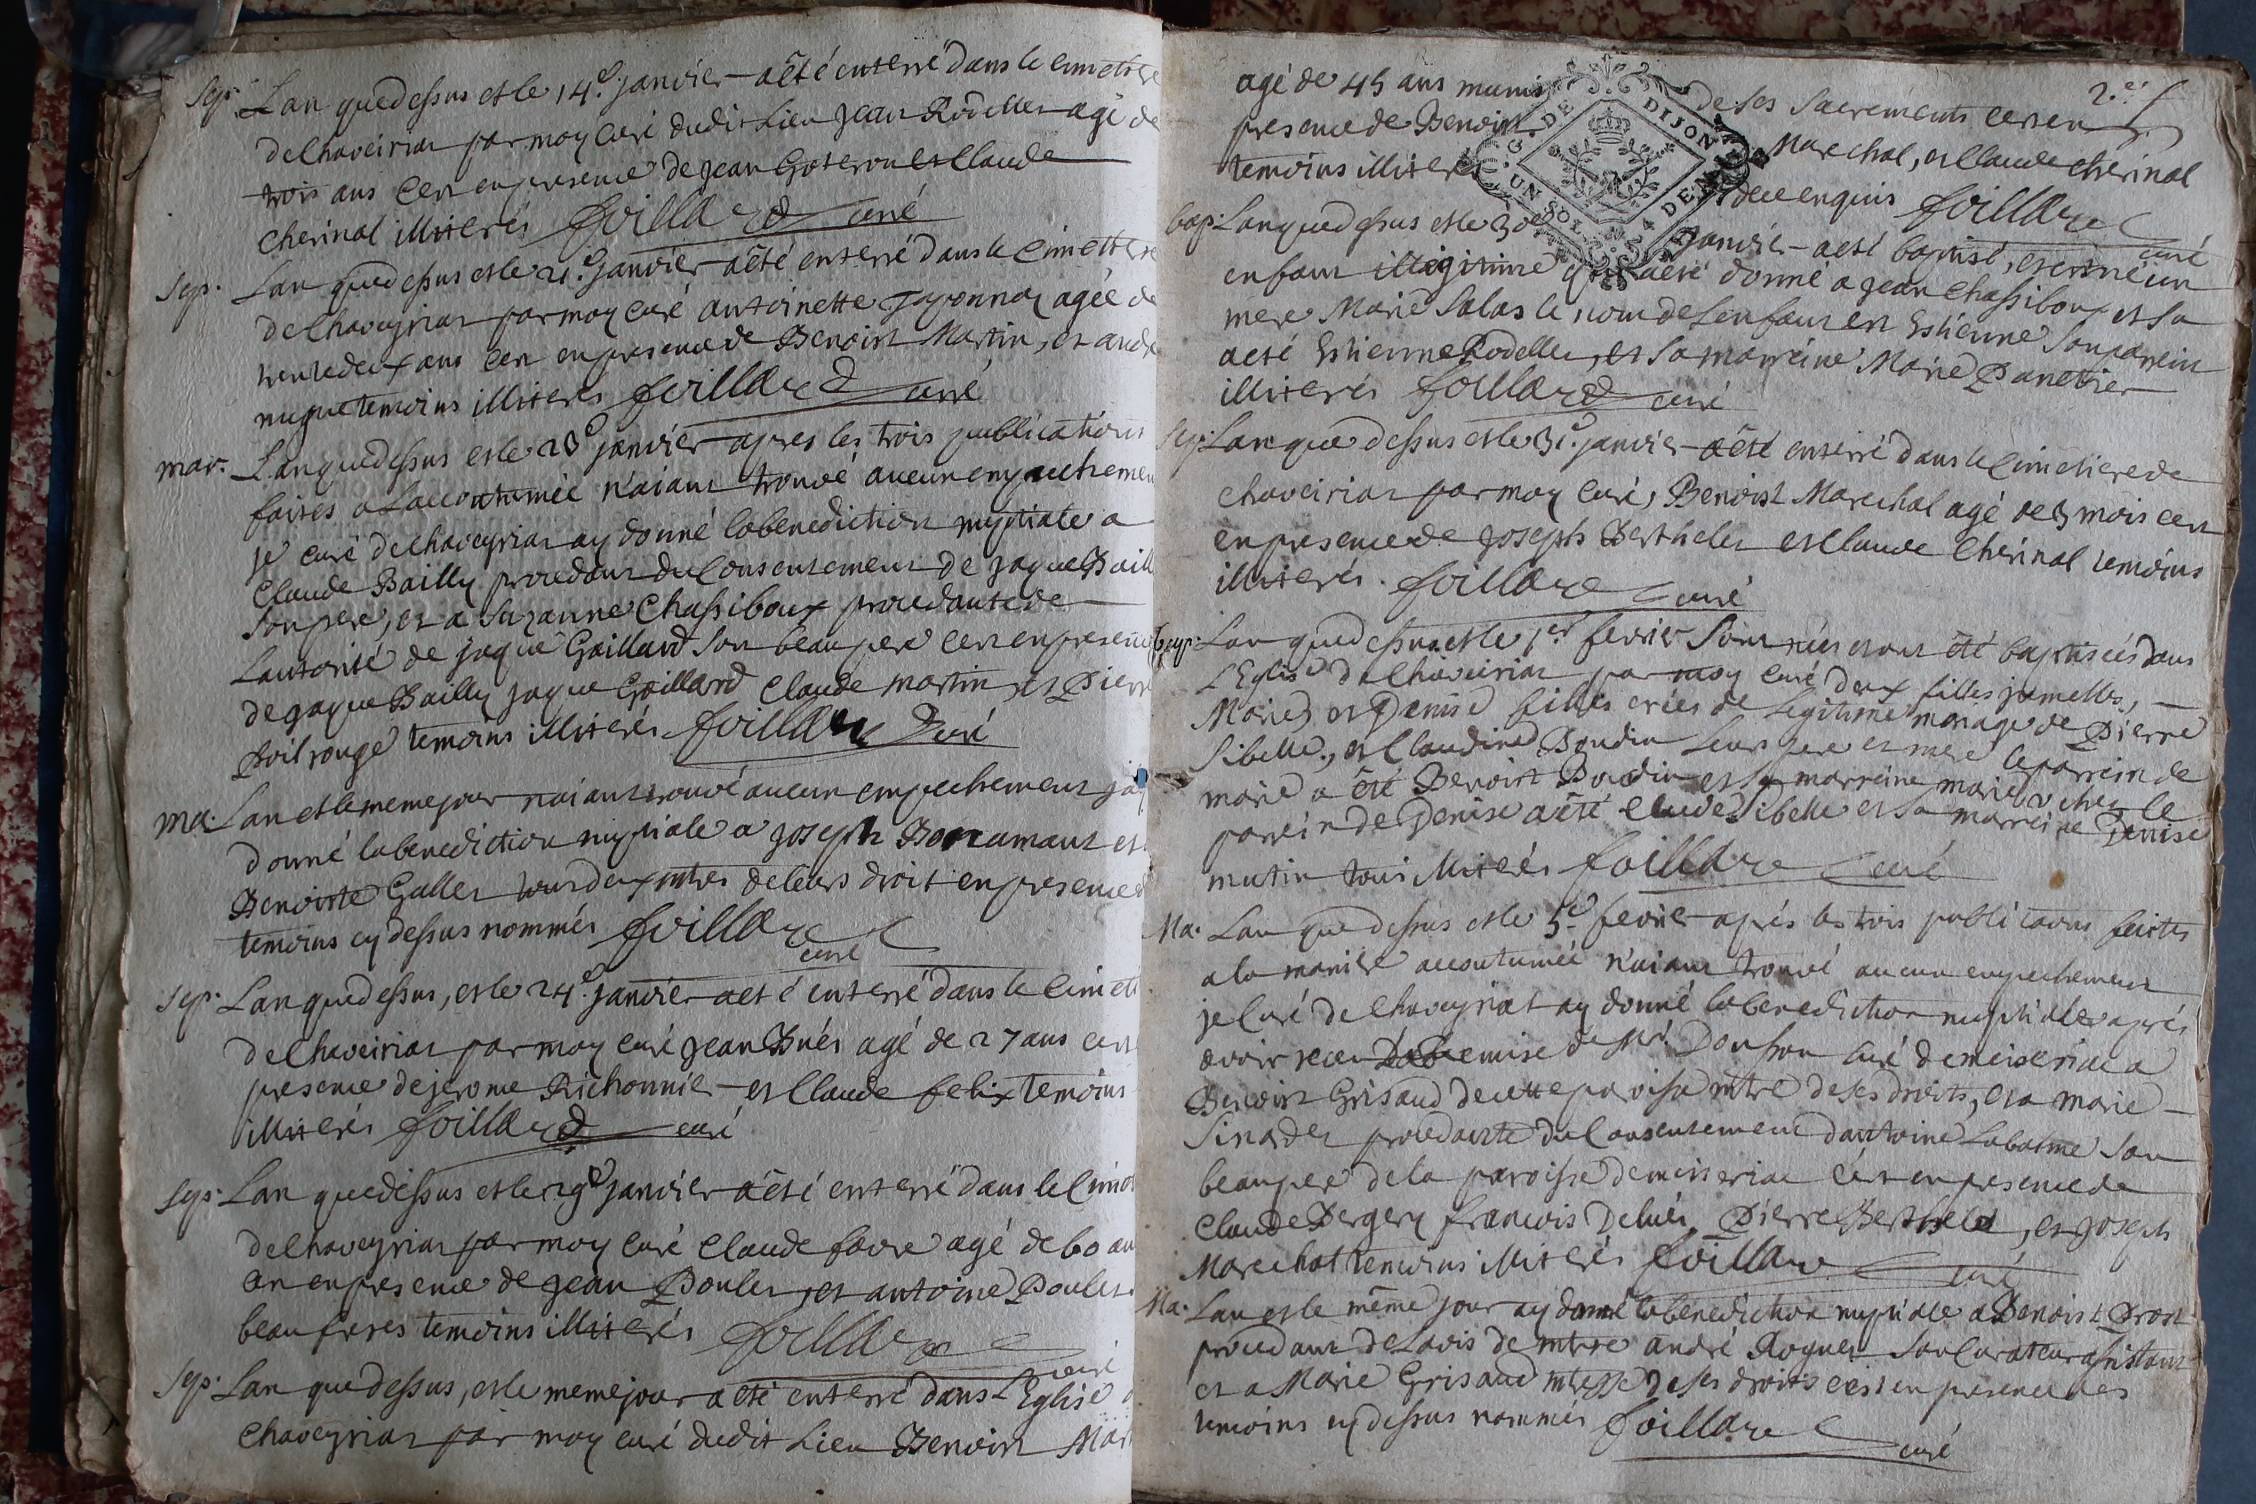 Sep. Lan que dessus et le 14.e janvier a êté enterré dans le cimettere
de Chaveiriat par moy curé dudit Lieu jean Rodellet agé de
trois ans cen en presence de jean Goteron et Claude
Cherinal illiterés foillard curé
Sep. Lan que dessus et le 21.e janvier a êté enterré dans le cimettere
de Chaveyriat par moy curé antoinette agée de
trente deux ans cen en presence de Benoist Martin, et
temoins illiterés foillard curé
mar. Lan que dessus et le 23.e janvier apres les trois publications
faites a Laccoutumée n'aiant trouvé aucun empechemen
je curé de Chaveyriat ay donné la benediction nuptiale a
Claude Bailly procedant du Consentement de jaque Baill
son pere, et a Suzanne Chassiboux procedante de
Lautorité de jaque Gaillard son beau pere cen en presence
de jaque Bailly jaque Gaillard Claude martin, et Pierr
Poil rouge temoins illiterés foillard curé
Ma. Lan et le meme jour n'aiant trouvé aucun empechement j'ay
donné la benediction nuptiale a joseph Bonamant et
Benoiste Gallet tous deux mtres de leurs droit en presence
temoins cy dessus nommés foillard
curé
Sep. Lan que dessus, et le 24.e janvier a eté enterré dans le Cimett
de Chaveiriat par moy curé jean Buéet agé de 27 ans cen
presence de jerome Richonnie et Claude felix temoins
illiterés foillard curé
Sep. Lan que dessus et le 29.e janvier a êté enterré dans le Cime
de Chaveyriat par moy curé Claude favre agé de 60 an
en presence de jean Poulet, et antoine Poulet
beau freres temoins illiterés foillard
curé
Sep. Lan que dessus, et le meme jour a eté enterré dans L'Eglise d
Chaveyriat par moy curé dudit Lieu Benoist Mar
2.e
agé de 45 ans munis de ses Sacrements cen en
presence de Benoist Marechal, et Claude Cherinal
temoins illiterés de ce enquis foillard
curé
G. DE DIJON
UN SOL 4 DEN
bap. Lan que dessus et le 30e janvier a eté baptisé, et est né un
enfant illegitime qui a eté donné a jean Chassiboux et sa
mere Marie Salas le nom de Lenfant est Estienne Son parrein
a eté Estienne Rodellet, et Sa marreine Marie Panetier
illiterés foillard curé
Sep. Lan que dessus et le 31.e janvier a êté enterré dans le Cimetiere de
Chaveiriat par moy curé, Benoist Marechal agé de 3 mois cen
en presence de joseph Berthelet et Claude Cherinal temoins
illiterés. foillard curé
bap. Lan que dessus et le 1.er fevrier sont nées et ont été baptisées dans
L'Eglise de Chaveiriat par moy curé deux filles jumelles,
Marie, et Denise filles crées de Legitime mariage de Pierre
Sibelle, et Claudine Boudin leurs pere et mere le parrein de
marie a êté Benoist Boudin et sa marreine marie le
parrein de Denise a êté Claude Sibelle et Sa marreine Denise
mutin tous illiterés foillard curé
Ma. Lan que dessus et le 5.e fevrier aprés les trois publications faites
a la maniere accoutumée n'aiant trouvé aucun empechement
je Curé de Chaveyriat ay donné la benediction nuptiale aprés
avoir receu La Remise de Mr. Douson curé de meiseriat a
Benoist Grisaud de cette paroisse mtre de ses droits, et a marie
Sinardet procedante du Consentement dantoine Labatme Son
beau pere de la paroisse de meisseriat C'est en presence de
Claude Bergery francois Deluées, Pierre Berthelet, et joseph
Marechal temoins illiterés foillard curé
Ma. Lan et le même jour ay donné la benediction nuptiale a Benoist Prost
procedant de Lavis de mtre andré Roguet Son Curateur assistant
et a Marie Grisaud mtesse de Ses droits c'est en presence des
temoins cy dessus nommés foillard curé